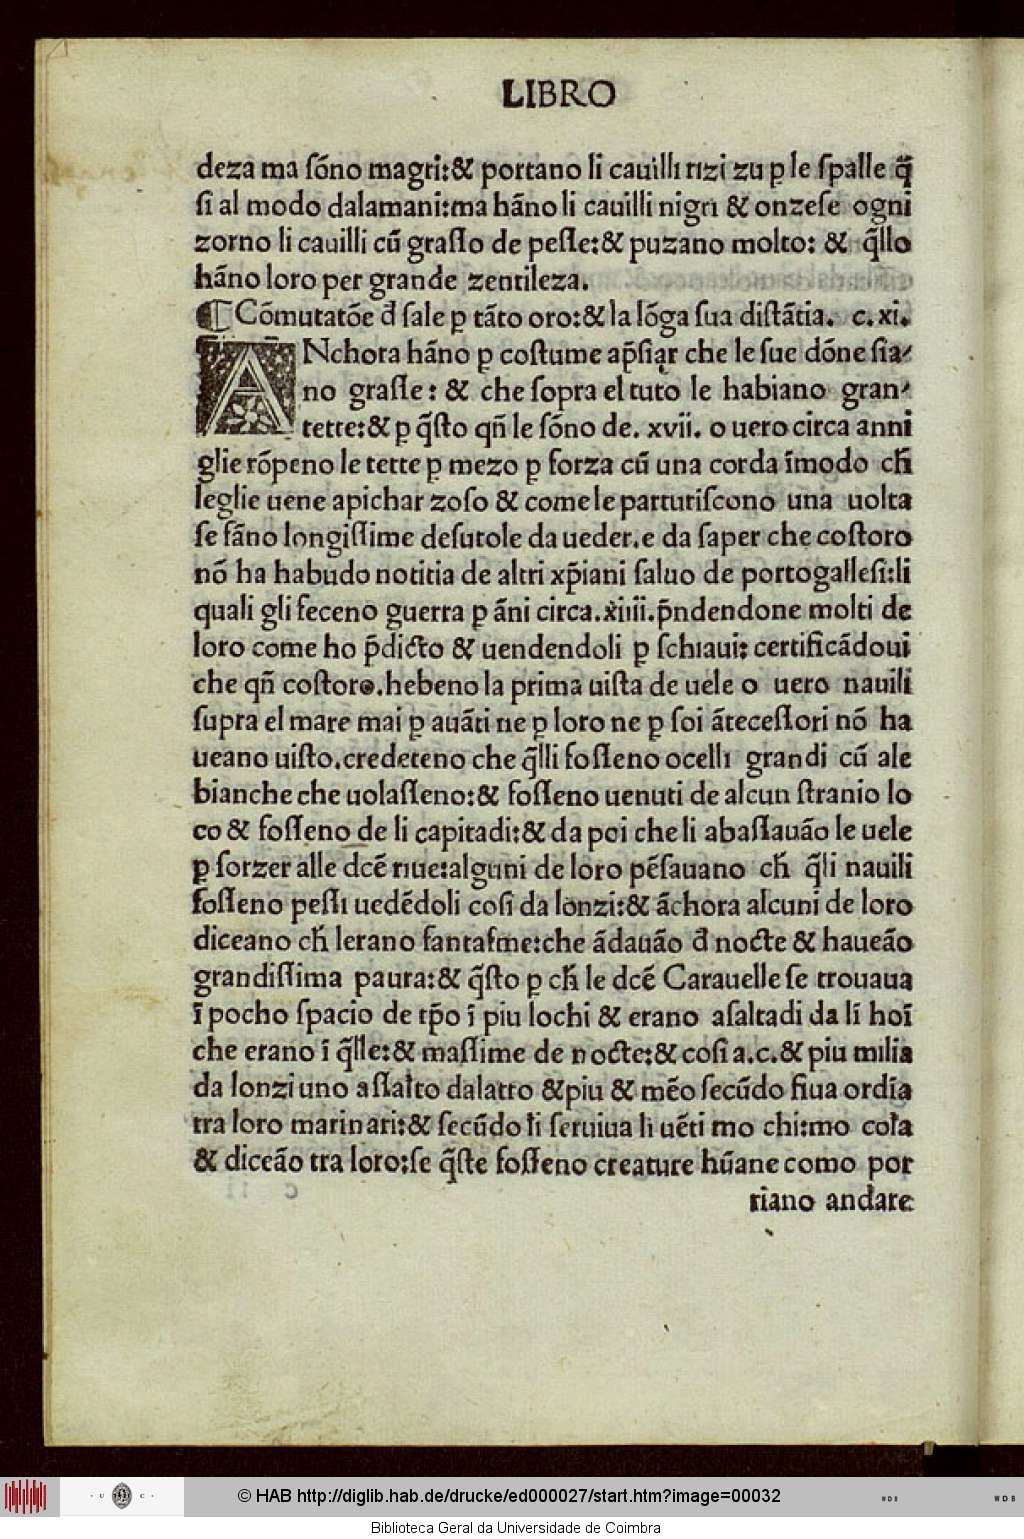 LIBRO
deza ma sõno magri:& portano li cauilli rizi zu ꝑ le spalle q̃
si al modo dalamani:ma hãno li cauilli nigri & onzese ogni
zorno li cauilli cũ grasso de pesse:& puzano molto: & q̃llo
hãno loro per grande zentileza.
¶ Cõmutatõe đ sale ꝑ tãto oro:& la lõga sua distãtia. c. xi.
ANchora hãno ꝑ costume ap̃siar che le sue dõne sia-
no grasse: & che sopra el tuto le habiano gran-
tette:& ꝑ q̃sto qñ le sõno de. xvii. o uero circa anni
glie rõpeno le tette ꝑ mezo ꝑ forza cũ una corda ĩmodo cħ
leglie uene apichar zoso & come le parturiscono una uolta
se fãno longissime desutole da ueder.e da saper che costoro
nõ ha habudo notitia de altri xp̃iani saluo de portogallesi:li
quali gli feceno guerra ꝑ ãni circa.xiiii.p̃ndendone molti de
loro come ho p̃dicto & uendendoli ꝑ schiaui: certificãdoui
che qñ costoro.hebeno la prima uista de uele o uero nauili
supra el mare mai ꝑ auãti ne ꝑ loro ne ꝑ soi ãtecessori nõ ha
ueano uisto.credeteno che q̃lli fosseno ocelli grandi cũ ale
bianche che uolasseno:& fosseno uenuti de alcun stranio lo
co & fosseno de li capitadi:& da poi che li abassauão le uele
ꝑ sorzer alle dcẽ riue:alguni de loro pẽsauano cħ q̃li nauili
fosseno pessi uedẽdoli cosi da lonzi:& ãchora alcuni de loro
diceano cħ lerano fantasme:che ãdauão đ nocte & haueão
grandissima paura:& q̃sto ꝑ cħ le dcẽ Carauelle se trouaua
ĩ pocho spacio de tp̃o ĩ piu lochi & erano asaltadi da lĩ hoĩ
che erano ĩ q̃lle:& massime de nocte:& cosi a.c.& piu milia
da lonzi uno assalto dalatro & piu & mẽo secũdo fiua ordĩa
tra loro marinari:& secũdo li seruiua li uẽti mo chi:mo cola
& diceão tra loro:se q̃ste fosseno creature hũane como por
riano andare
© HAB http://diglib.hab.de/drucke/ed000027/start.htm?image=00032
Biblioteca Geral da Universidade de Coimbra